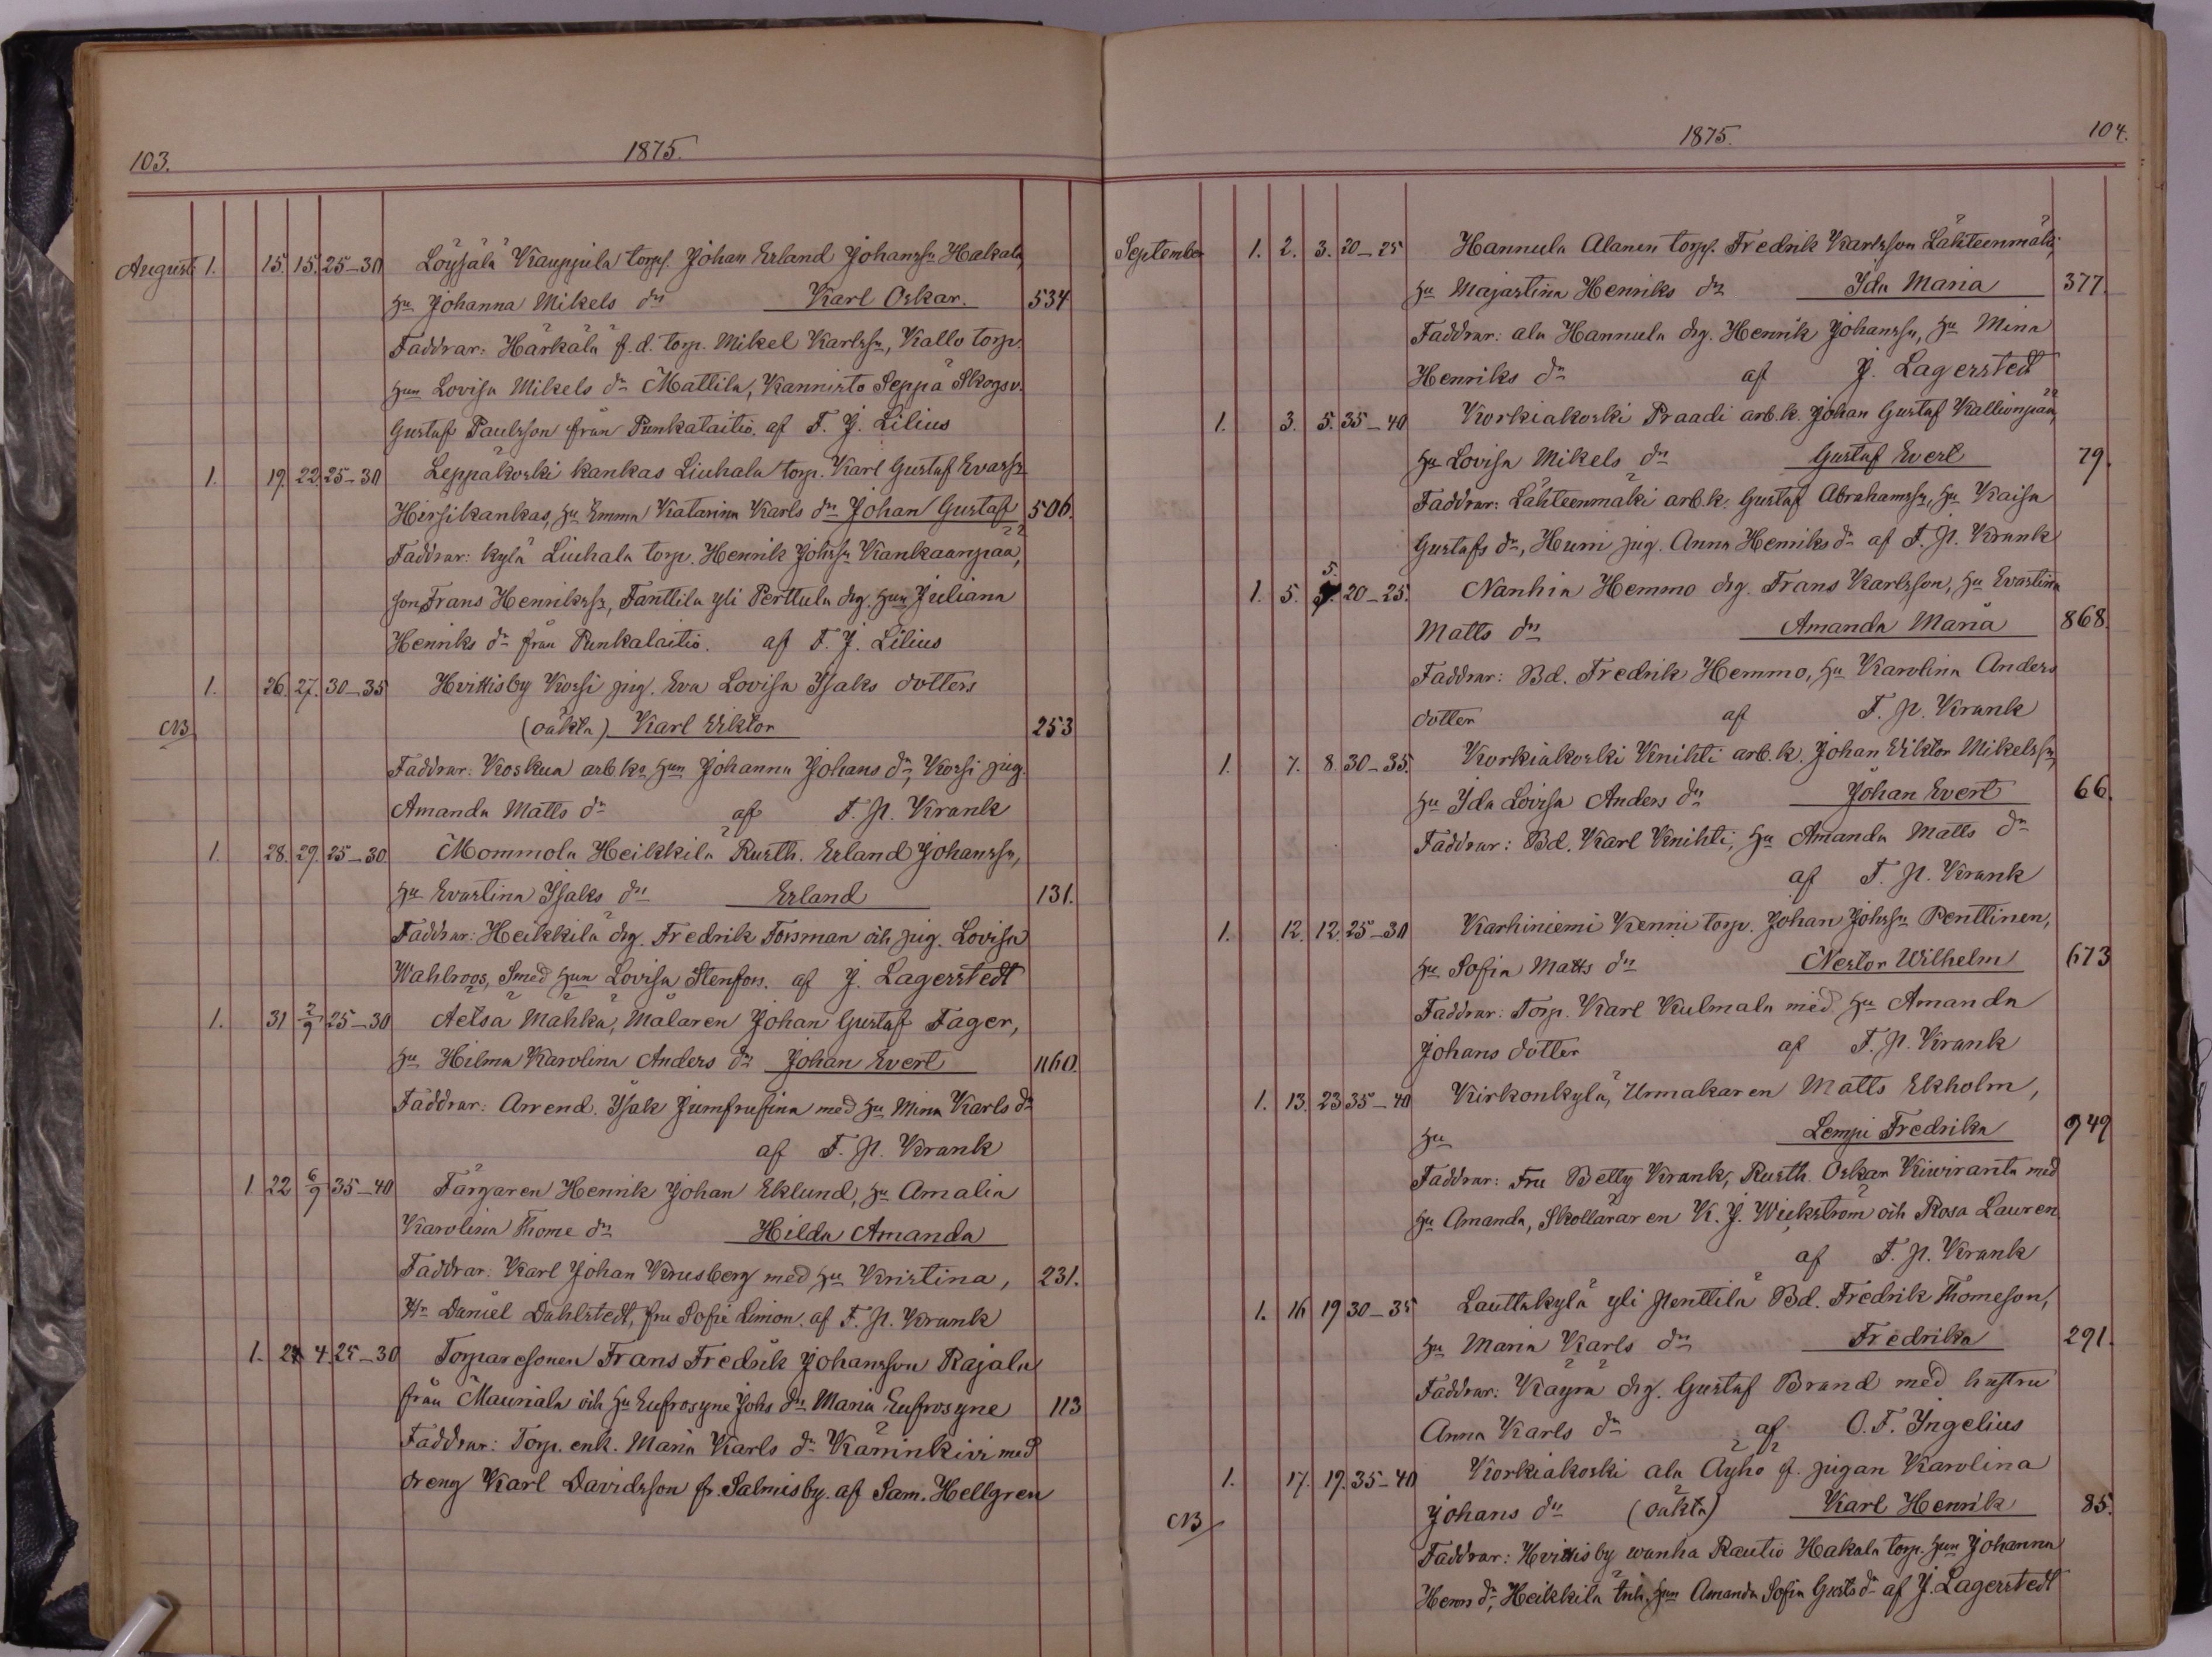 103.
1875.
August 1. 15. 15. 25-30 Löysälä Kauppila torp. Johan Erland Johanss. Hakala,
hu Johanna Mikels dr Karl Oskar. 534
Faddrar: Härkälä f.d. torp. Mikel Karlss., Kallo torp.
hun Lovisa Mikels dr Mattila, Kannisto Seppä Skogsv.
Gustaf Paulsson från Punkalaitio. af F. J. Lilius
1. 19. 22. 25-30 Leppäkoski kankas Liuhala torp. Karl Gustaf Evarss.
Hirsikankas, hu Emma Katarina Karls dr Johan Gustaf 506.
Faddrar: kylä Liuhala torp. Henrik Johss. Kankaanpää,
son Frans Henrikss., Fanttila yli Perttula drg. hun Juliana
Henriks dr från Punkalaitio. af F. J. Lilius
1. 26. 27. 30-35 Hvittisby Korsi pig. Eva Lovisa Isaks dotters
NB (oäkta) Karl Viktor 253
Faddrar: Koskua arb.ks hun Johanna Johans dr, Korsi pig.
Amanda Matts dr af F. N. Krank
1. 28. 29. 25-30 Mommola Heikkilä Rusth. Erland Johanss.,
hu Evastina Isaks dr Erland 131.
Faddrar: Heikkilä drg. Fredrik Forsman och pig. Lovisa
Wahlroos, Smed hun Lovisa Stenfors. af J. Lagerstedt
1. 31 2/9 25-30 Äetsä Mähkä, Målaren Johan Gustaf Fager,
hu Hilma Karolina Anders dr Johan Evert 1160.
Faddrar: Arrend. Isak Jumfrusina med hu Mina Karls dr
af F. N. Krank
1 22 6/9 35-40 Färgaren Henrik Johan Eklund, hu Amalia
Karolina Thome dr Hilda Amanda
Faddrar: Karl Johan Krusberg med hu Kristina, 231.
Hr Daniel Dahlstedt, fru Sofie Limon. af F. N. Krank
1. 24 4. 25-30 Torparesonen Frans Fredrik Johansson Rajala
från Mauriala och hu Eufrosyne Johs dr Maria Eufrosyne 113
Faddrar: Torp. enk. Maria Karls dr Käninkivi med
dreng Karl Davidsson fr. Salmisby. af Sam. Hellgren
1875.
104.
September 1. 2. 3. 20-25 Hannula Alanen torp. Fredrik Karlsson Lähteenmäki,
hu Majastina Henriks dr Ida Maria 377.
Faddrar: ala Hannula drg. Henrik Johanss., hu Mina
Henriks dr af J. Lagerstedt
1. 3. 5. 35-40 Korkiakoski Praadi arb.k. Johan Gustaf Kallionpää,
hu Lovisa Mikels dr Gustaf Evert 79.
Faddrar: Lähteenmäki arb.k. Gustaf Abrahamss., hu Kaisa
Gustafs dr, Huni pig. Anna Henriks dr af F. N. Krank
1. 5. 5. 20-25. Nanhia Hemmo drg. Frans Karlsson, hu Evastina
Matts dr Amanda Maria 868.
Faddrar: Bd. Fredrik Hemmo, hu Karolina Anders
dotter af F. N. Krank
1. 7. 8. 30-35. Korkiakoski Knihti arb.k. Johan Viktor Mikelss.,
hu Ida Lovisa Anders dr Johan Evert 66.
Faddrar: Bd. Karl Knihti, hu Amanda Matts dr
af F. N. Krank
1. 12. 12. 25-30 Karhiniemi Kenni torp. Johan Johss. Penttinen,
hu Sofia Matts dr Nestor Wilhelm 673
Faddrar: Torp. Karl Kulmala med hu Amanda
Johans dotter af F. N. Krank
1. 13. 23 35-40 Kirkonkylä, Urmakaren Matts Ekholm,
hu Lempi Fredrika 949
Faddrar: Fru Betty Krank, Rusth. Oskar Kiviranta med
hu Amanda, Skolläraren K. J. Wickström och Rosa Lauren
af F. N. Krank
1. 16 19 30-35 Lauttakylä yli Penttilä Bd. Fredrik Thomeson,
hu Maria Karls dr Fredrika 291.
Faddrar: Käyrä drg. Gustaf Brand med hustru
Anna Karls dr af O. F. Ingelius
1. 17. 19. 35-40 Korkiakoski ala Äyhö f. pigan Karolina
NB Johans dr (oäkta) Karl Henrik 85.
Faddrar: Hvittisby wanha Rautio Hakala torp. hun Johanna
Henrs dr, Heikkilä inh. hun Amanda Sofia Gusts dr af J. Lagerstedt